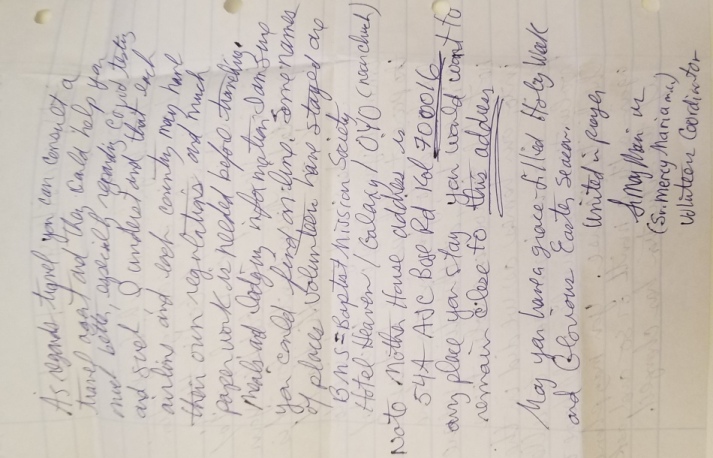 As regards travel you can consult a
travel agent and they could help you
much better, especially regards Covid tests
and such. I understand that each
airline and each country may have
their own regulations and much
paperwork is needed before traveling.
Meals and lodging information I am sure
you could find on line. Some names
of places volunteers have stayed are
BMS = Baptist Mission Society
Hotel Heaven / Galaxy / OYO (near church)
Note Mother House address is
54A AJC Bose Rd Kol 700016
any place you stay you would want to
remain close to this address
May you have a grace-filled Holy Week
and Glorious Easter Season.
United in prayer
Sr Mercy Maria mc
(Sr. Mercy Maria m.c.)
Volunteer Coordinator